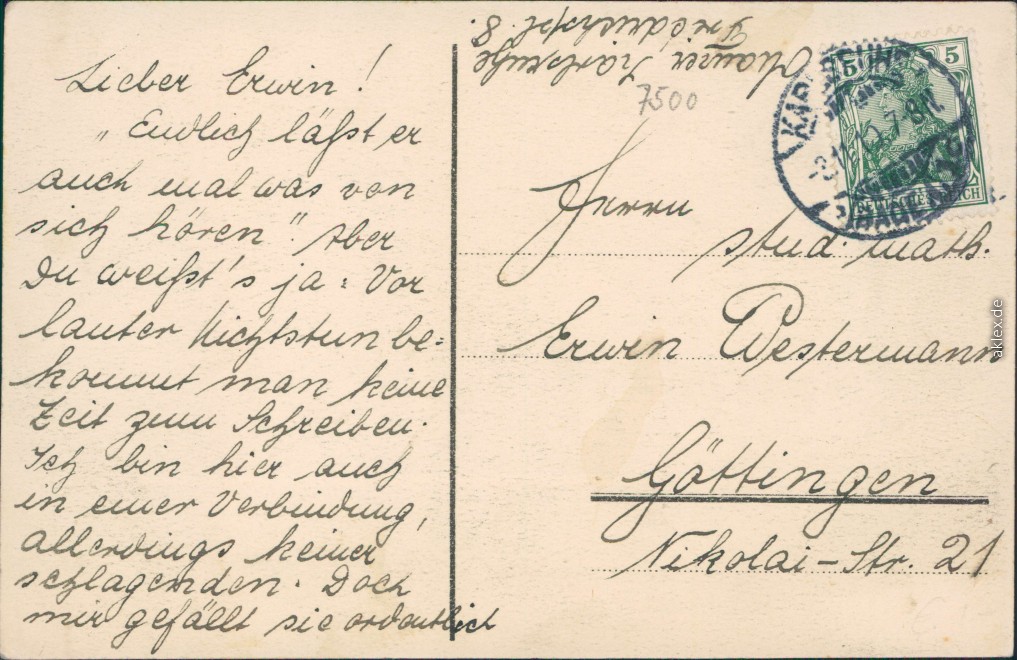 Lieber Erwin!
„Endlich läßt er
auch mal was von
sich hören". Aber
Du weißt's ja: Vor
lauter Nichtstun be=
kommt man keine
Zeit zum Schreiben.
Ich bin hier auch
in einer Verbindung,
allerdings keiner
schlagenden. Doch
mir gefällt sie ordentlich
Karlsruhe
Friedrichspl. 8.
7500
5 5
DEUTSCHES REICH
KARLSRUHE
7-8N.
(BADEN)
Herrn
stud. math.
Erwin Westermann
Göttingen
Nikolai-Str. 21
aklex.de